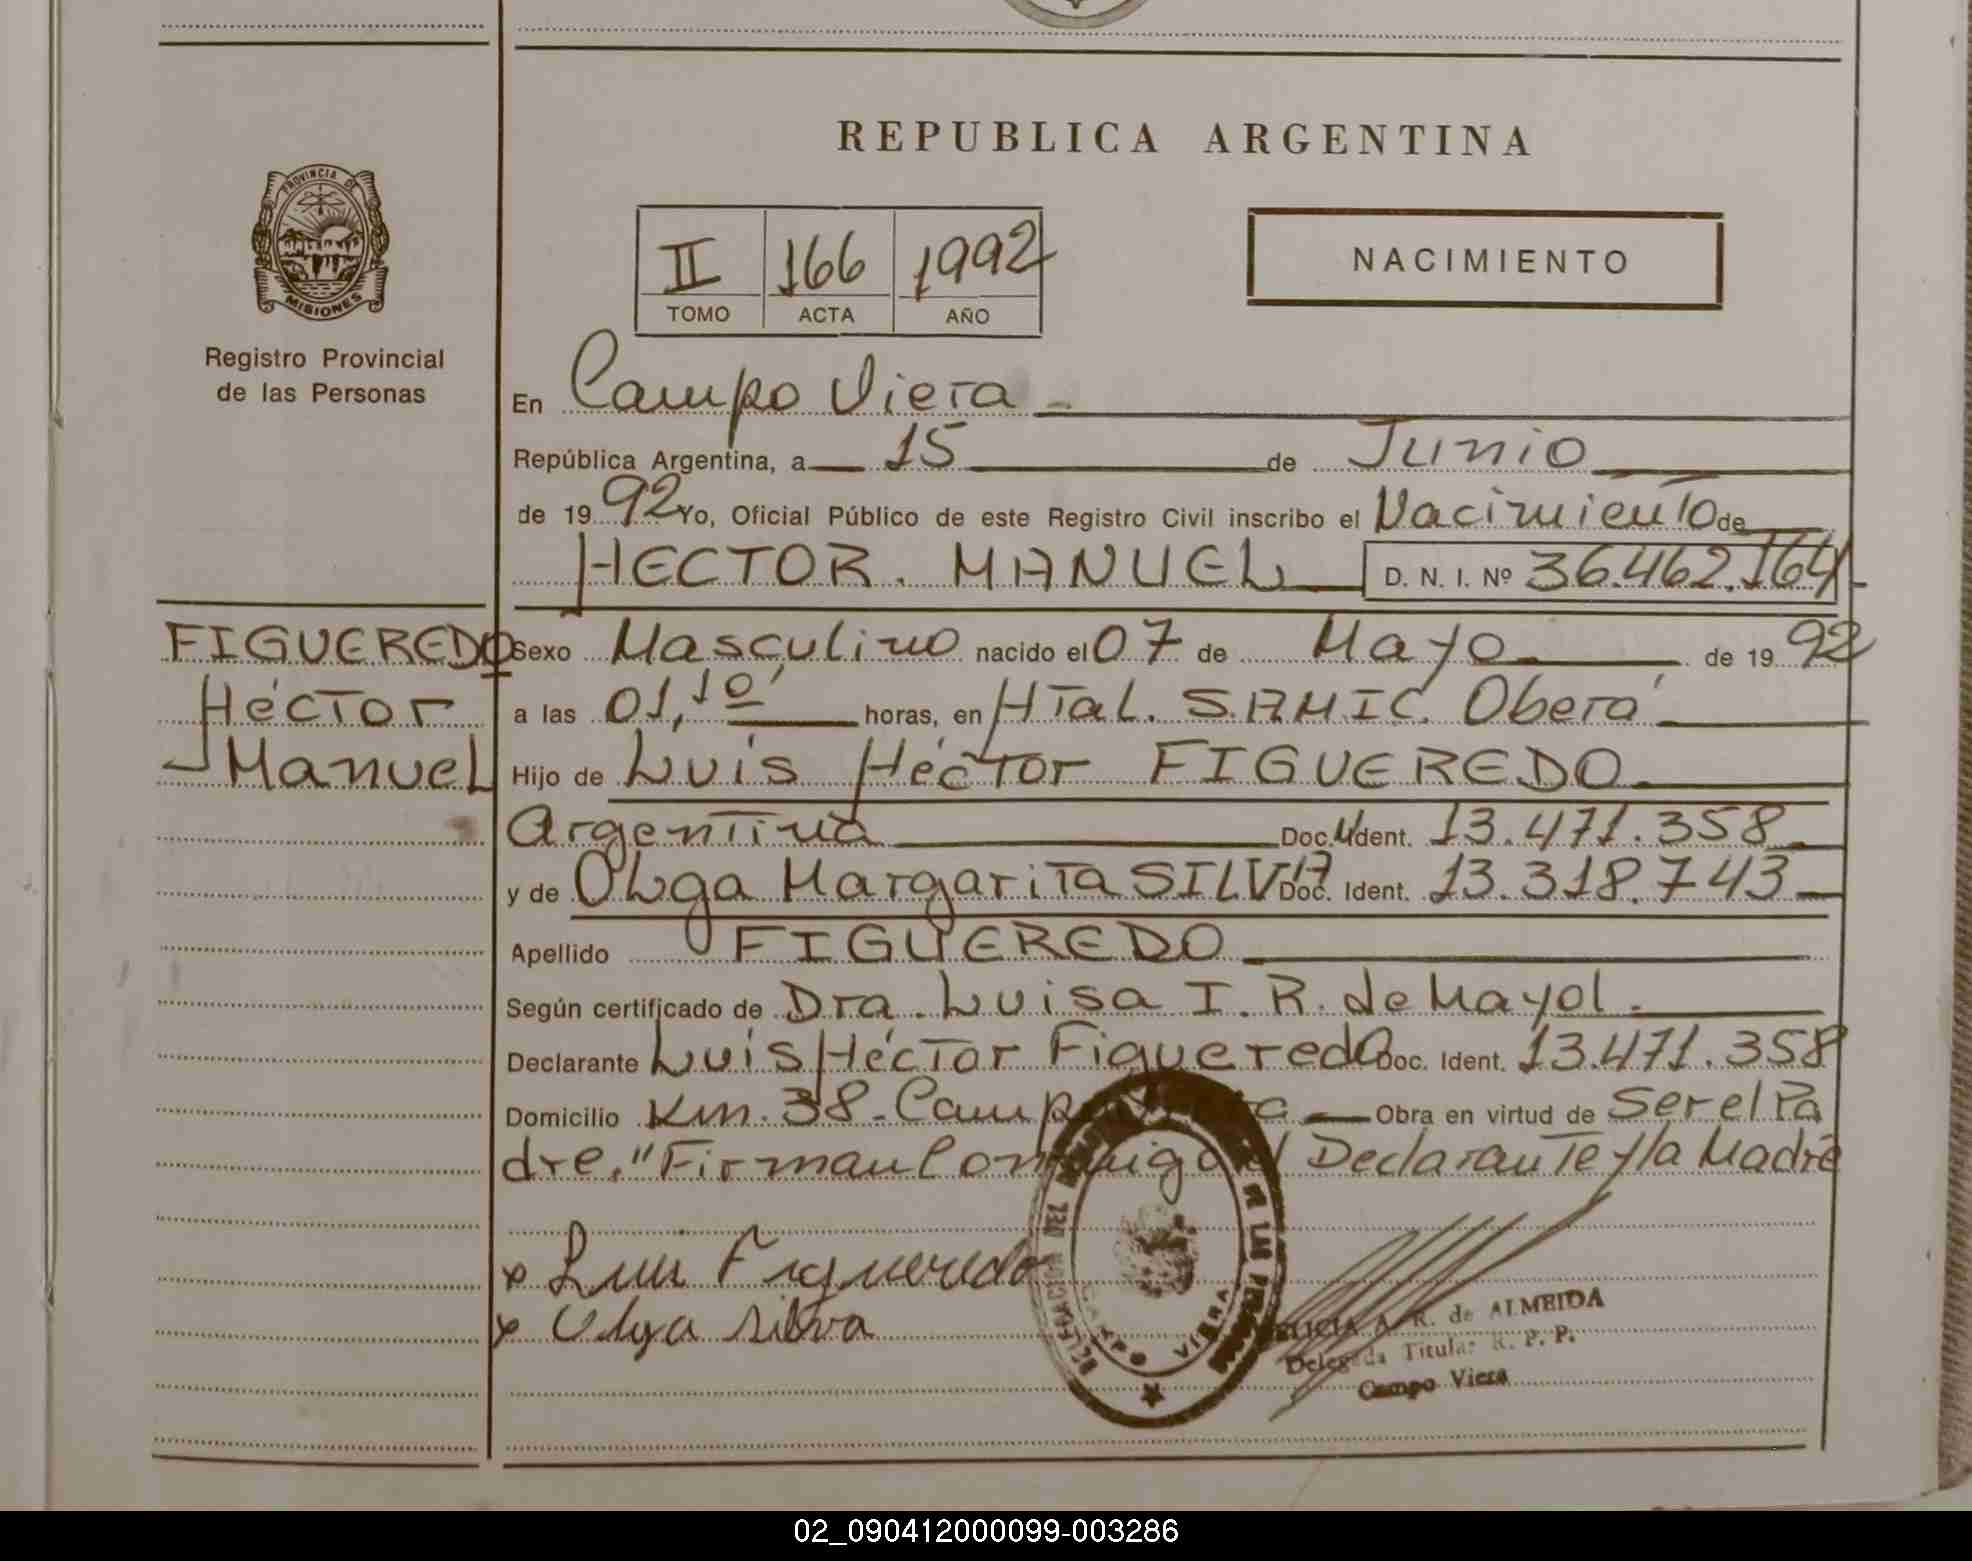 REPUBLICA ARGENTINA
PROVINCIA DE
MISIONES
Registro Provincial
de las Personas
II 166 1992
TOMO ACTA AÑO
NACIMIENTO
En Campo Viera
República Argentina, a 15 de Junio
de 1992 Yo, Oficial Público de este Registro Civil inscribo el Nacimiento de
HECTOR. MANUEL D. N. I. Nº 36.462.164
FIGUEREDO
Héctor
Manuel
Sexo Masculino nacido el 07 de Mayo de 1992
a las 01,10 horas, en Htal. S.A.M.I.C. Oberá
Hijo de Luis Héctor FIGUEREDO
Argentina Doc. Ident. 13.471.358
y de Olga Margarita SILVA Doc. Ident. 13.318.743
Apellido FIGUEREDO
Según certificado de Dra. Luisa I. R. de Mayol.
Declarante Luis Héctor Figueredo Doc. Ident. 13.471.358
Domicilio Km. 38 - Campo Viera Obra en virtud de Ser el Pa
dre." Firman Conmigo el Declarante y la Madre
x Luis Figueredo
x Olga Silva
DE LAS PERSONAS
VIERA
A. R. de ALMEIDA
Delegada Titular R. P. P.
Campo Viera
02_090412000099-003286